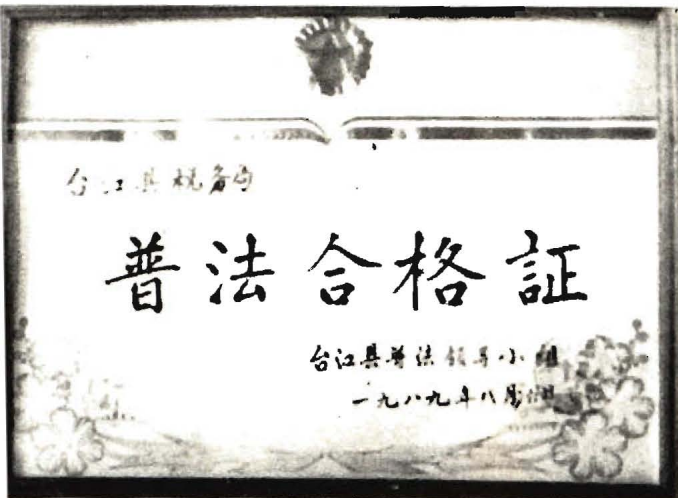 台江县税务局
普法合格証
台江县普法领导小组
一九八九年八月